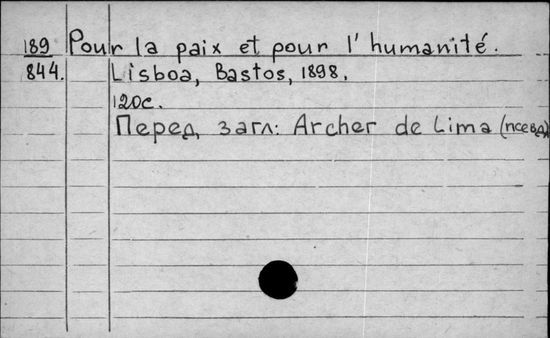 189 Pour la paix et pour l'humanité.
844. Lisboa, Bastos, 1898.
120с.
Перед загл: Archer de Lima (псевд)